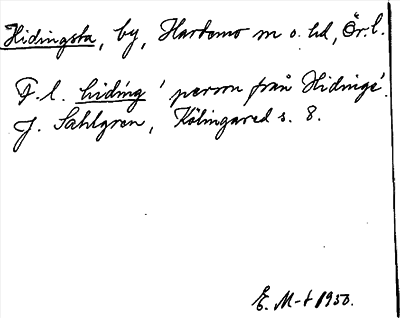 Hidingsta, by, Hardemo sn o. hd, Ör. l.
F. l. hiding 'person från Hidinge'.
J. Sahlgren, Kölingared s. 8.
E. M-t 1950.